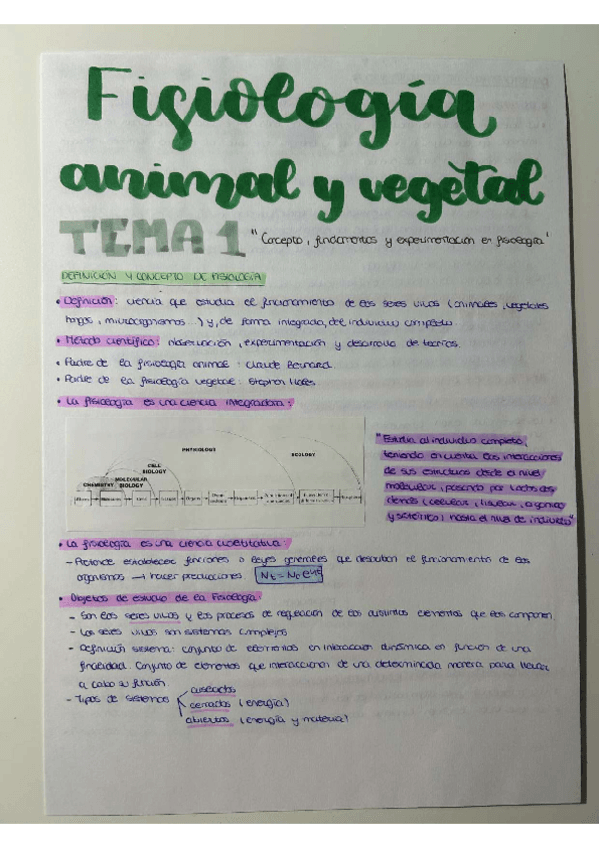 Fisiología
animal y vegetal
TEMA 1 "Concepto, fundamentos y experimentación en fisiología"
DEFINICIÓN Y CONCEPTO DE FISIOLOGÍA
• Definición: ciencia que estudia el funcionamiento de los seres vivos (animales, vegetales
hongos, microorganismos...) y, de forma integrada, del individuo completo.
• Método científico: observación, experimentación y desarrollo de teorías.
• Padre de la fisiología animal: Claude Bernard
• Padre de la fisiología vegetal: Stephen Hales
• La fisiología es una ciencia integradora:
PHYSIOLOGY
ECOLOGY
CELL
BIOLOGY
MOLECULAR
CHEMISTRY BIOLOGY
"Estudia al individuo completo,
teniendo en cuenta las interacciones
de sus estructuras desde el nivel
molecular, pasando por todos los
demás (celular, tisular, orgánico
y sistémico) hasta el nivel de individuo"
• La fisiología es una ciencia cuantitativa:
- Pretende establecer funciones o leyes generales que describan el funcionamiento de los
organismos → hacer predicciones
• Objetos de estudio de la Fisiología
- Son los seres vivos y los procesos de regulación de los distintos elementos que los componen.
- Los seres vivos son sistemas complejos
- Definición sistema: conjunto de elementos en interacción dinámica en función de una
finalidad. Conjunto de elementos que interaccionan de una determinada manera para llevar
a cabo su función.
- Tipos de sistemas
aislados
cerrados (energía)
abiertos (energía y materia)